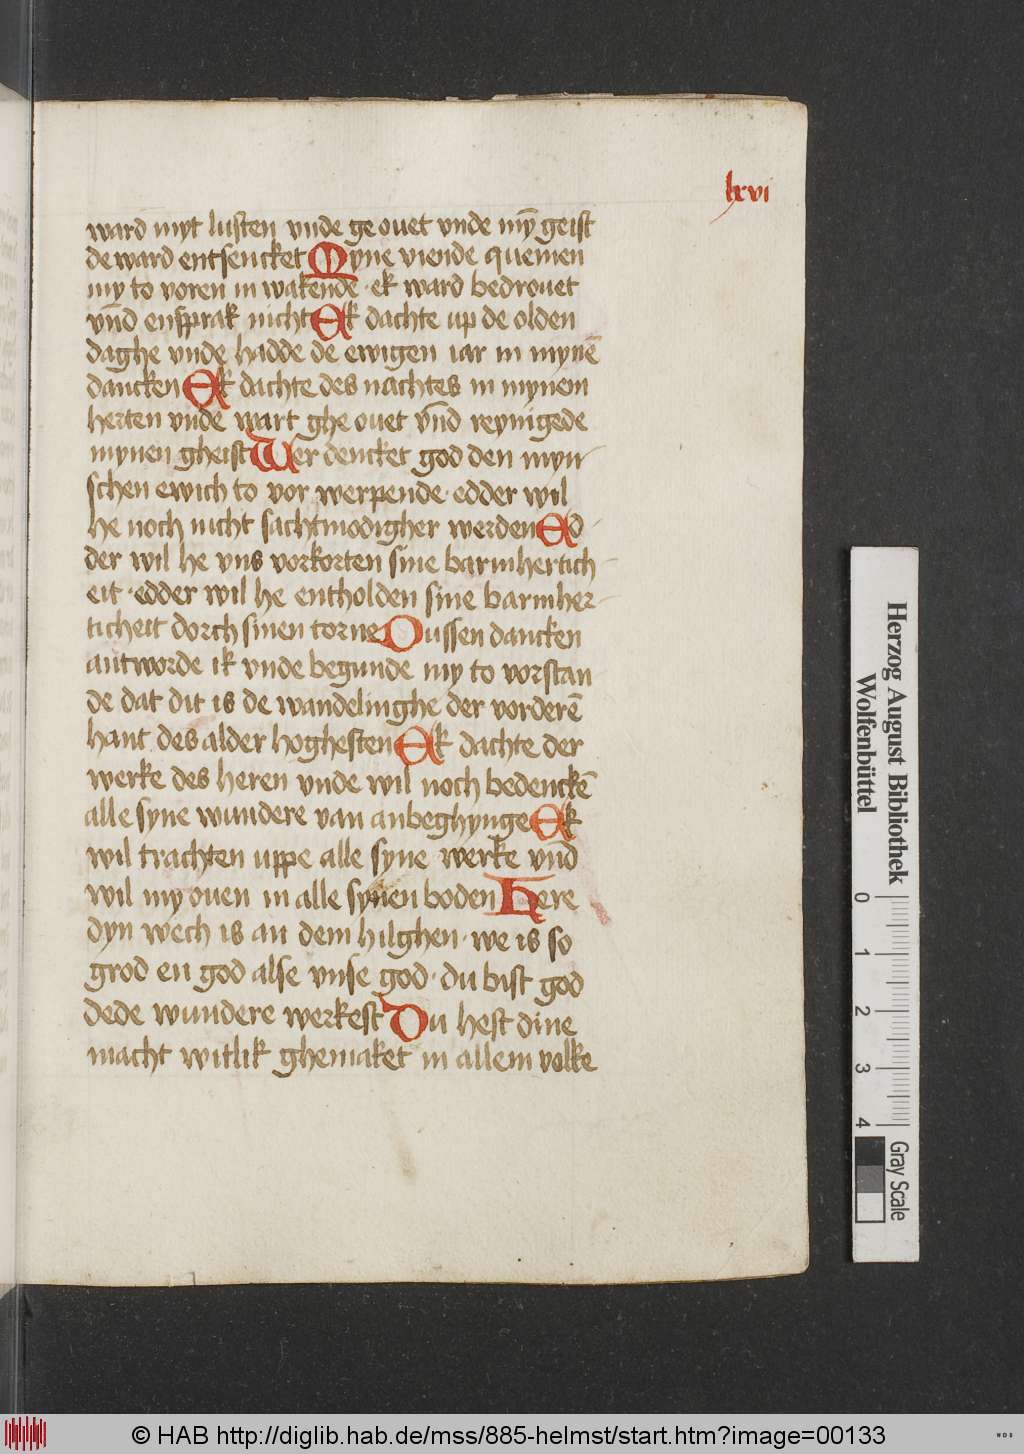 lxvi
ward myt lusten vnde ge ouet vnde mȳ geist
de ward entsencket Myne viende quemen
my to voren in wakende · ek ward bedrouet
vn̄d ensprak nicht Ek dachte up de olden
daghe vnde hadde de ewigen iar in mynē
dancken Ek dachte des nachtes in mynem
herten vnde wart ghe ouet vn̄d reynigede
mynen gheist Wer dencket god den myn-
schen ewich to vor werpende · edder wil
he noch nicht sachtmodigher werden Ed-
der wil he vns vorkorten sine barmhertich-
eit · edder wil he entholden sine barmher-
ticheit dorch sinen torne Dussen dancken
antworde ik vnde begunde my to vorstan
de dat dit is de wandelinghe der vorderē
hant des alder hoghesten Ek dachte der
werke des heren vnde wil noch bedenckē
alle syne wundere van anbeghynge Ek
wil trachten uppe alle syne werke vn̄d
wil my ouen in alle synen boden Here
dyn wech is an dem hilghen · we is so
grod en god alse vnse god · du bist god
dede wundere werkest Du hest dine
macht witlik ghemaket in allem volke
Herzog August Bibliothek
Wolfenbüttel
0 1 2 3 4
Gray Scale
© HAB http://diglib.hab.de/mss/885-helmst/start.htm?image=00133
WDB